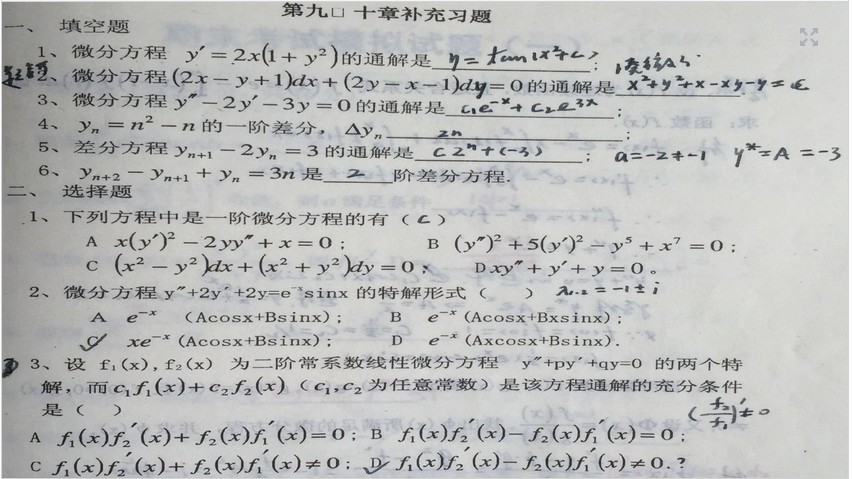 第九□ 十章补充习题
一、 填空题
1、微分方程 y′=2x(1+y²)的通解是 y = tan(x²+c) ;
2、微分方程(2x-y+1)dx+(2y-x-1)dy=0的通解是 x²+y²+x-xy-y=c
3、微分方程y″-2y′-3y=0的通解是 c₁e⁻ˣ+c₂e³ˣ ;
4、yₙ=n²-n的一阶差分，Δyₙ 2n ;
5、差分方程yₙ₊₁-2yₙ=3的通解是 c2ⁿ+(-3) ; a=-2≠-1 y*=A=-3
6、yₙ₊₂-yₙ₊₁+yₙ=3n是 2 阶差分方程.
二、 选择题
1、下列方程中是一阶微分方程的有（C）
A x(y′)²-2yy″+x=0； B (y″)²+5(y′)²-y⁵+x⁷=0；
C (x²-y²)dx+(x²+y²)dy=0； D xy″+y′+y=0。
2、微分方程y″+2y′+2y=e⁻ˣsinx的特解形式（ ） λ₁.₂=-1±i
A e⁻ˣ (Acosx+Bsinx)； B e⁻ˣ(Acosx+Bxsinx)；
C xe⁻ˣ(Acosx+Bsinx)； D e⁻ˣ(Axcosx+Bsinx).
3、设 f₁(x), f₂(x) 为二阶常系数线性微分方程 y″+py′+qy=0 的两个特
解，而c₁f₁(x)+c₂f₂(x)（c₁,c₂为任意常数）是该方程通解的充分条件
是（ ） (f₂/f₁)′≠0
A f₁(x)f₂′(x)+f₂(x)f₁′(x)=0；B f₁(x)f₂′(x)-f₂(x)f₁′(x)=0；
C f₁(x)f₂′(x)+f₂(x)f₁′(x)≠0；D f₁(x)f₂′(x)-f₂(x)f₁′(x)≠0.?